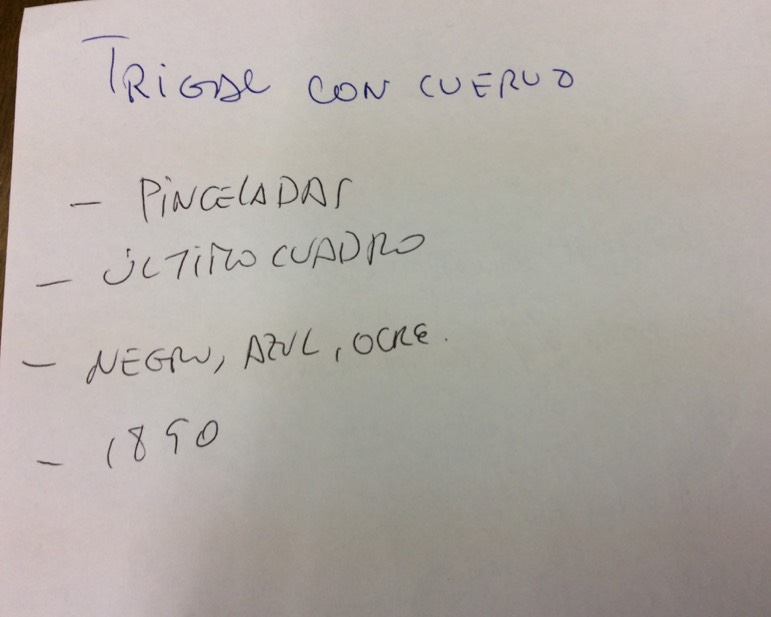 TRIGAL CON CUERVO
- PINCELADAS
- ÚLTIMO CUADRO
- NEGRO, AZUL, OCRE.
- 1890